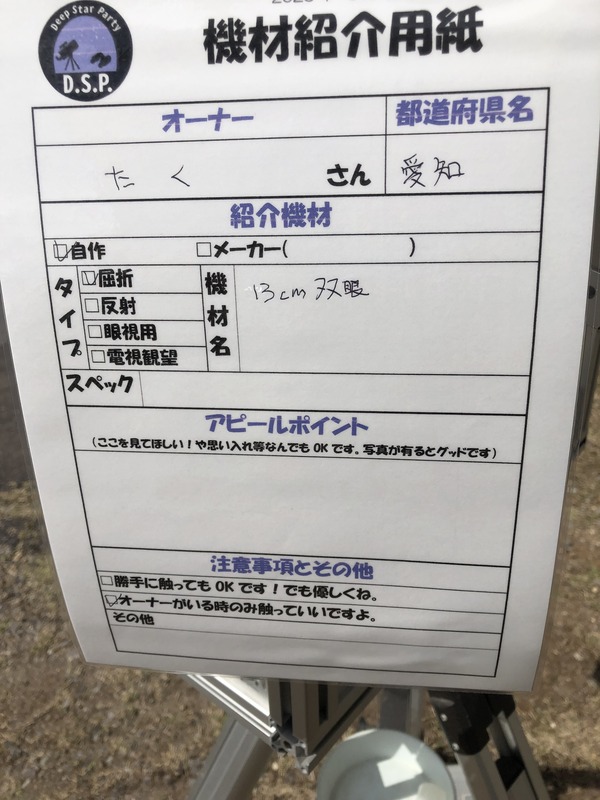 Deep Star Party
D.S.P.
機材紹介用紙
オーナー 都道府県名
たく さん 愛知
紹介機材
☑自作 □メーカー( )
タイプ ☑屈折 機材名 13cm 双眼
□反射
□眼視用
□電視観望
スペック
アピールポイント
(ここを見てほしい!や思い入れ等なんでもOKです。写真が有るとグッドです)
注意事項とその他
□勝手に触ってもOKです!でも優しくね。
☑オーナーがいる時のみ触っていいですよ。
その他